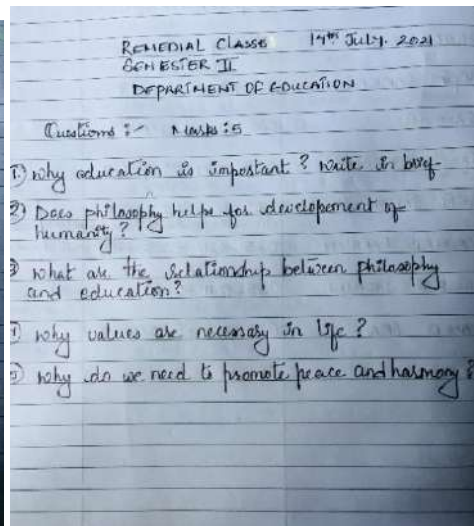 REMEDIAL CLASSE 14th July. 2021
SEMESTER II
DEPARTMENT OF EDUCATION
Questions :- Marks :5
1) why education is important ? write in brief
2) Does philosophy helps for developement of
humanity ?
3 what are the relationship between philosophy
and education ?
4) why values are necessary in life ?
5) why do we need to promote peace and harmony ?